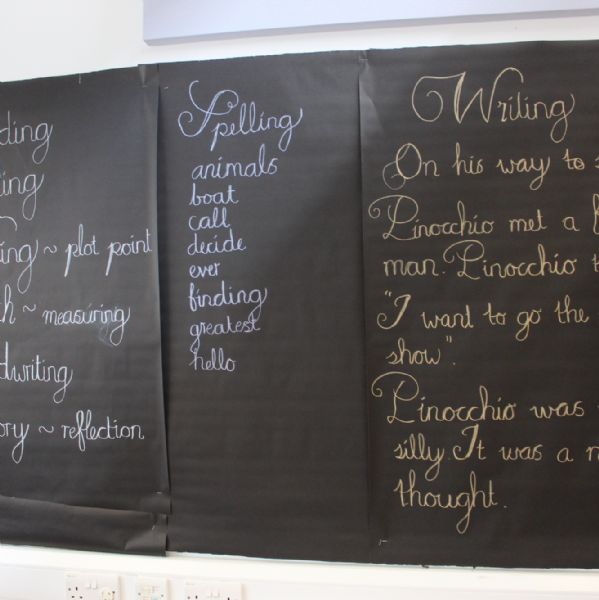 ding
ing
ing ~ plot point
h ~ measuring
dwriting
ory ~ reflection
Spelling
animals
boat
call
decide
ever
finding
greatest
hello
Writing
On his way to s
Pinocchio met a
man. Pinocchio t
"I want to go the
show".
Pinocchio was
silly. It was a
thought.